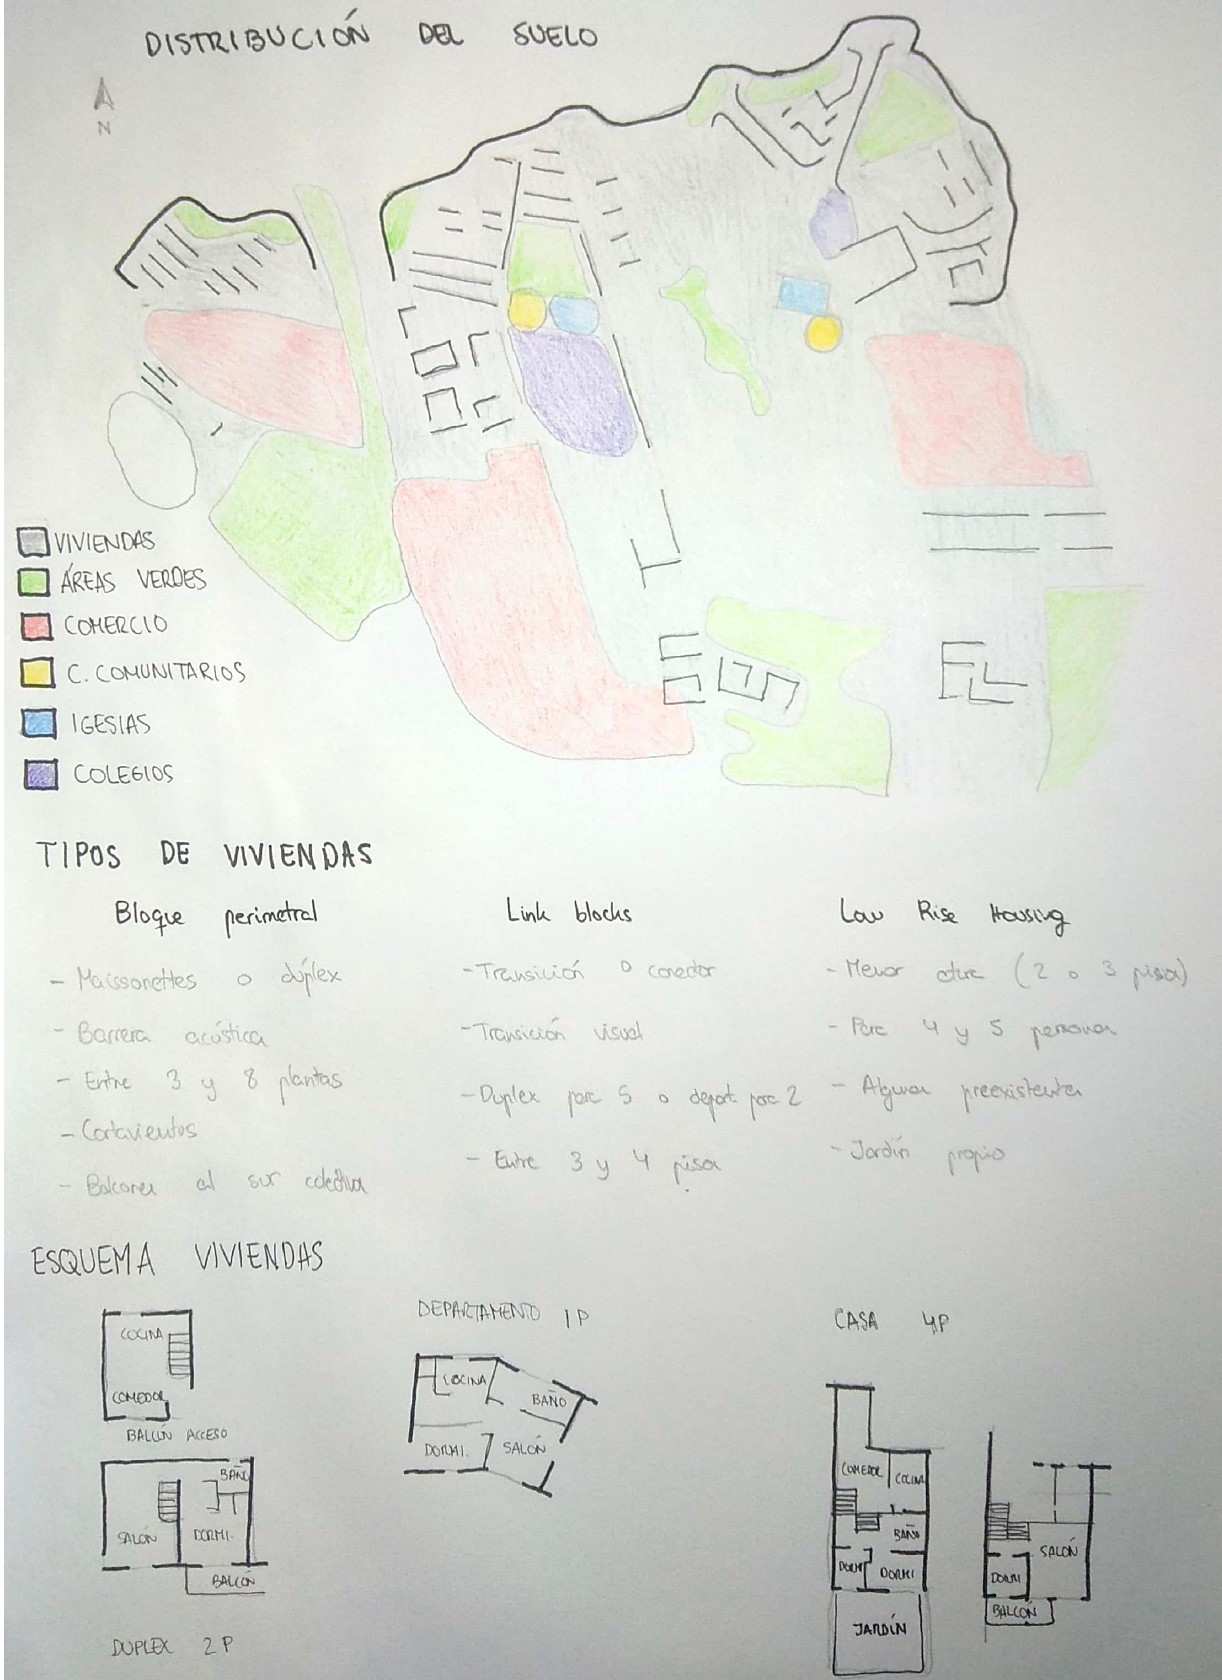 DISTRIBUCIÓN DEL SUELO
N
VIVIENDAS
ÁREAS VERDES
COMERCIO
C. COMUNITARIOS
IGESIAS
COLEGIOS
TIPOS DE VIVIENDAS
Bloque perimetral
- Maissonettes o dúplex
- Barrera acústica
- Entre 3 y 8 plantas
- Cortavientos
- Balcones al sur colectiva
Link blocks
- Transición o conector
- Transición visual
- Duplex para 5 o depart. para 2
- Entre 3 y 4 pisos
Low Rise Housing
- Menor altura (2 o 3 pisos)
- Para 4 y 5 personas
- Algunas preexistentes
- Jardín propio
ESQUEMA VIVIENDAS
COCINA
COMEDOR
BALCÓN ACCESO
BAÑO
SALÓN
DORMI.
BALCÓN
DUPLEX 2P
DEPARTAMENTO 1P
COCINA
BAÑO
DORMI.
SALÓN
CASA 4P
COMEDOR
COCINA
BAÑO
DORMI
DORMI
JARDÍN
SALÓN
DORMI
BALCÓN